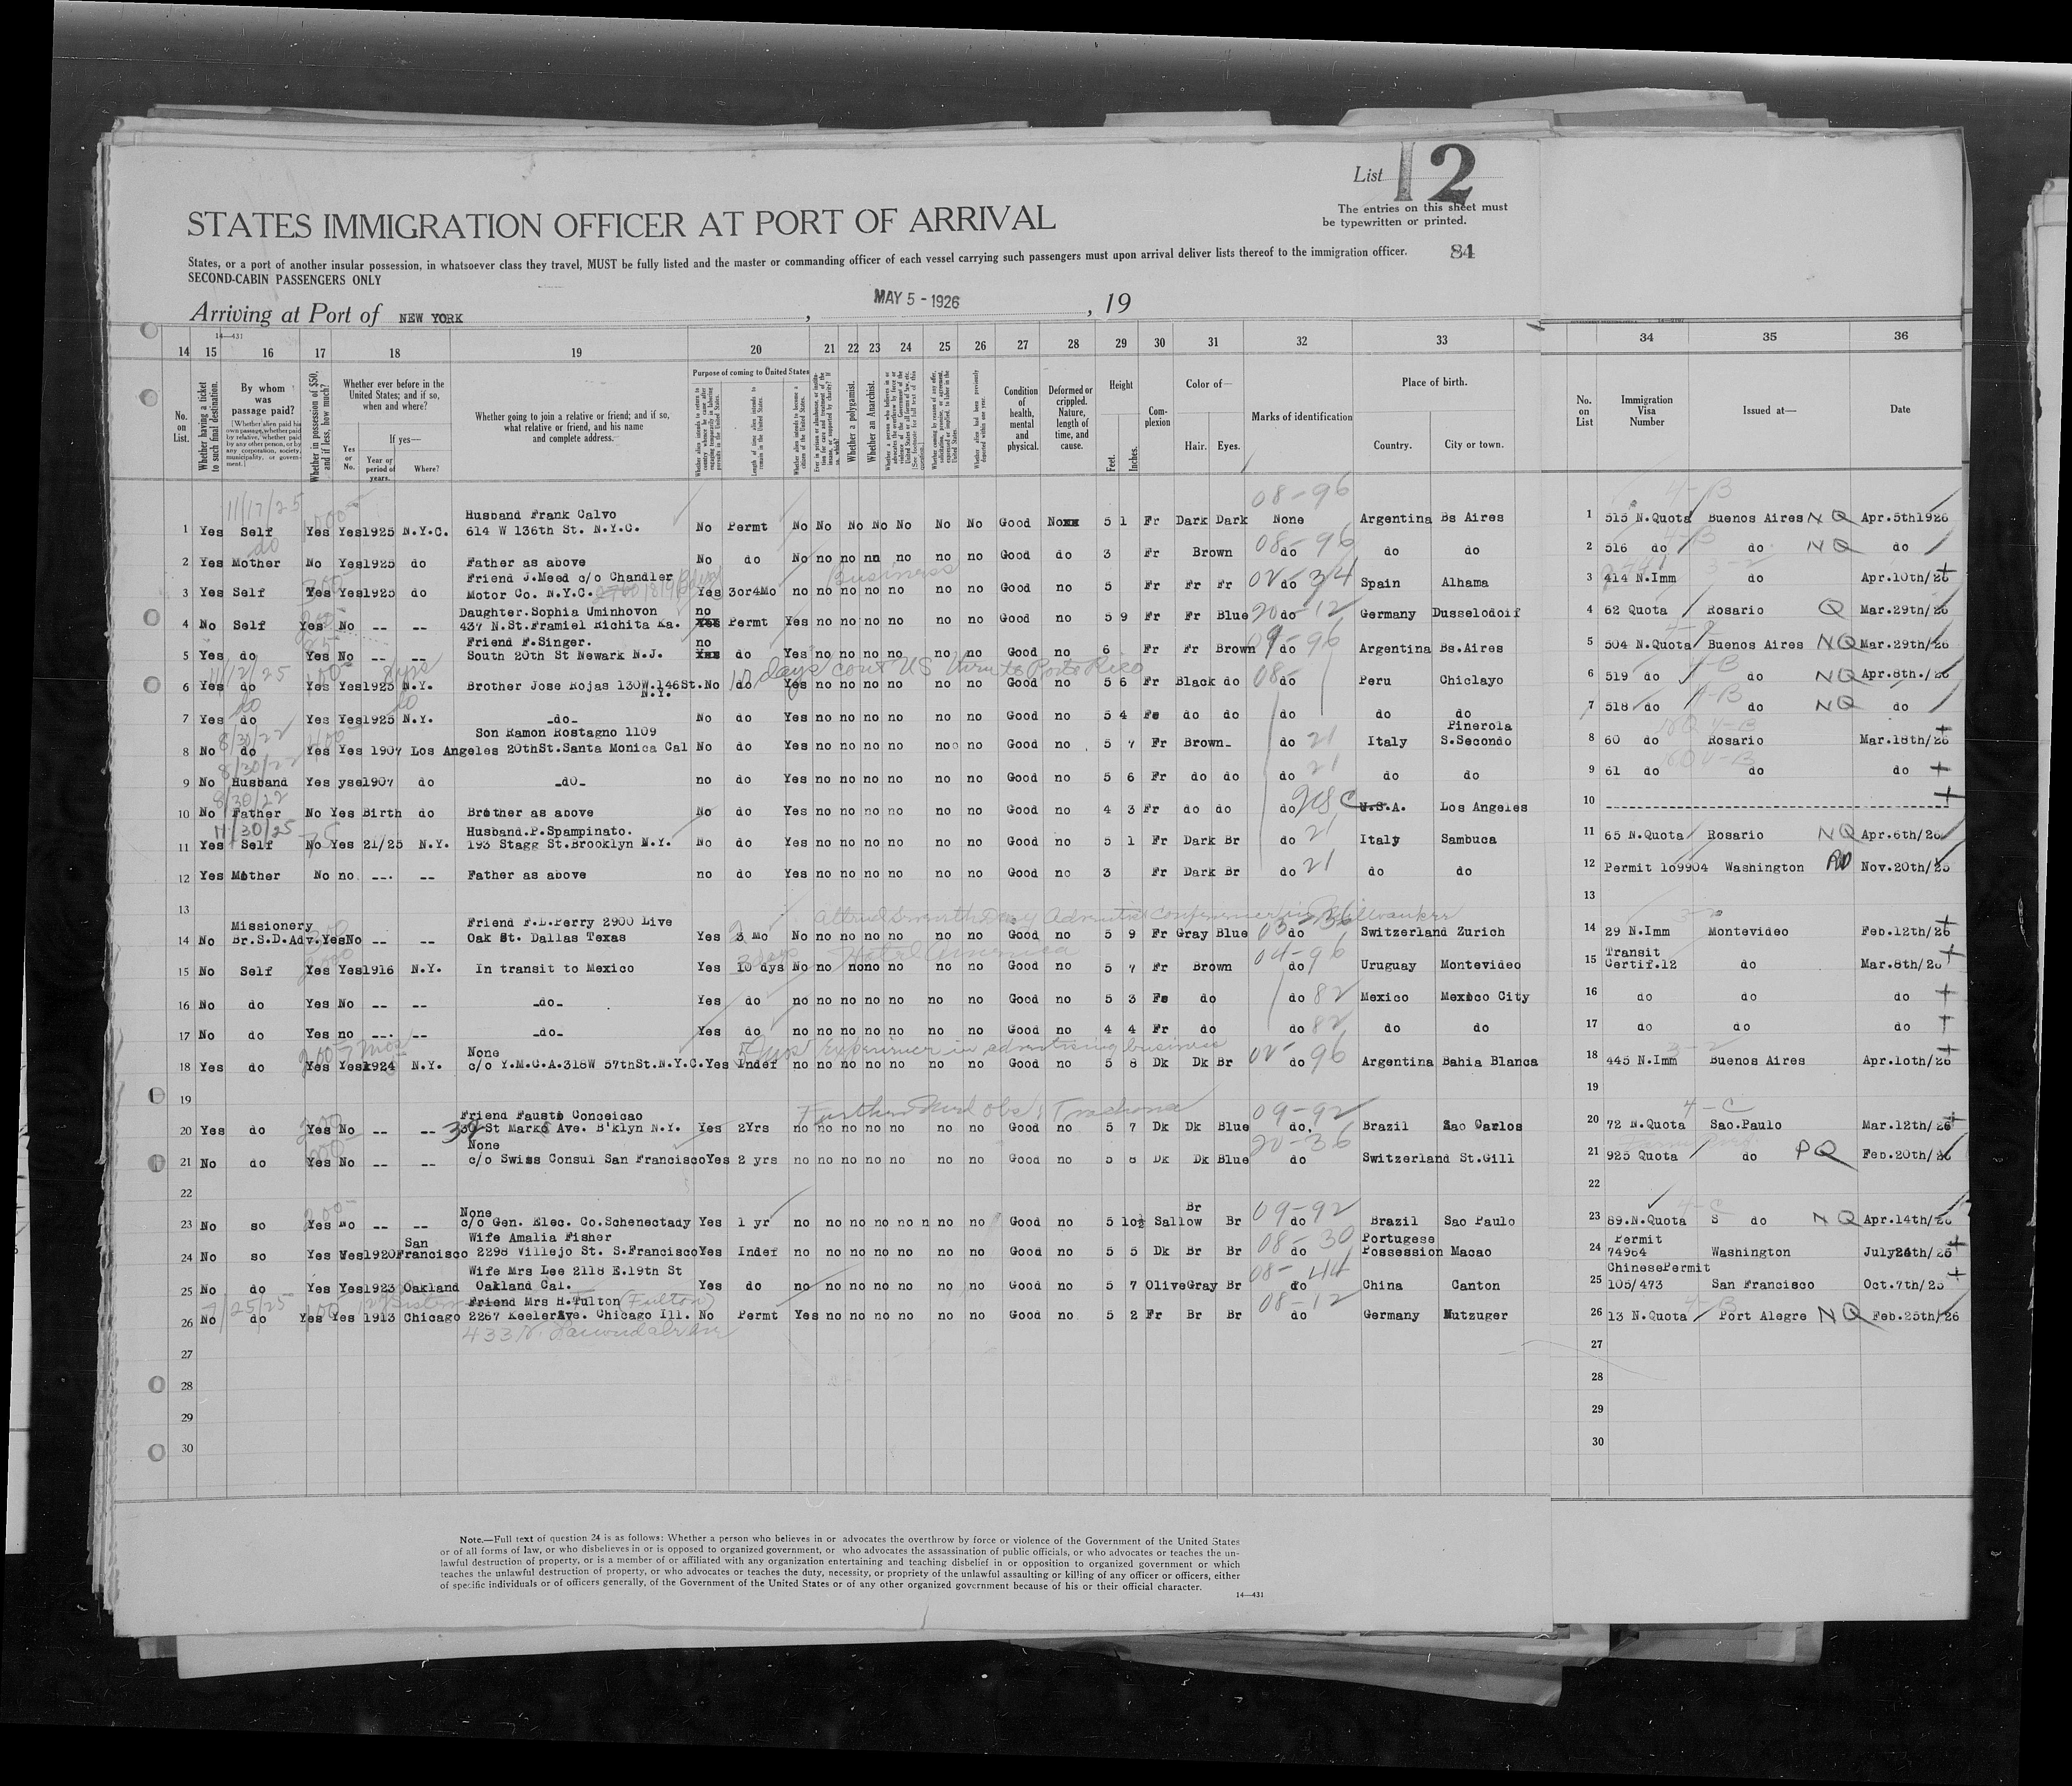 List 12
The entries on this sheet must
be typewritten or printed.
STATES IMMIGRATION OFFICER AT PORT OF ARRIVAL
84
States, or a port of another insular possession, in whatsoever class they travel, MUST be fully listed and the master or commanding officer of each vessel carrying such passengers must upon arrival deliver lists thereof to the immigration officer.
SECOND-CABIN PASSENGERS ONLY
Arriving at Port of NEW YORK, MAY 5 - 1926, 19
14—431
14 15 16 17 18 19 20 21 22 23 24 25 26 27 28 29 30 31 32 33 34 35 36
No. on List.
Whether having a ticket to such final destination.
By whom was passage paid?
Whether in possession of $50, and if less, how much?
Whether ever before in the United States; and if so, when and where?
Yes or No.
If yes—
Year or period of years.
Where?
Whether going to join a relative or friend; and if so, what relative or friend, and his name and complete address.
Purpose of coming to United States
Length of time alien intends to remain in the United States.
Whether a polygamist.
Whether an Anarchist.
Condition of health, mental and physical.
Deformed or crippled. Nature, length of time, and cause.
Height
Feet.
Inches.
Complexion
Color of—
Hair. Eyes.
Marks of identification
Place of birth.
Country. City or town.
No. on List
Immigration Visa Number
Issued at—
Date
11/17/25 08-96 4-B
Husband Frank Calvo
1 Yes Self Yes Yes 1925 N.Y.C. 614 W 136th St. N.Y.C. No Permt No No No No No No No Good Noxx 5 1 Fr Dark Dark None Argentina Bs Aires 1 515 N.Quota Buenos Aires NQ Apr.5th1926
do 08-96
2 Yes Mother No Yes1925 do Father as above No do No no no no no no no Good do 3 Fr Brown do do do 2 516 do do NQ do
Friend J.Meed c/o Chandler Business 02-34
3 Yes Self Yes Yes1925 do Motor Co. N.Y.C. Yes 3or4Mo no no no no no no no Good no 5 Fr Fr Fr do Spain Alhama 3 414 N.Imm do Apr.10th/26
Daughter.Sophia Uminhovon no
4 No Self Yes No -- -- 437 N.St.Framiel Richita Ka. Yes Permt Yes no no no no no no Good no 5 9 Fr Fr Blue 20 do -12 Germany Dusselodolf 4 62 Quota Rosario Q Mar.29th/26
Friend F.Singer. no 09-96
5 Yes do Yes No -- -- South 20th St Newark N.J. Yes do Yes no no no no no no Good no 6 Fr Fr Brown do Argentina Bs.Aires 5 504 N.Quota Buenos Aires NQ Mar.29th/26
11/12/25 8yrs 10 days cont US thru to Porto Rico
6 Yes do Yes Yes1925 N.Y. Brother Jose Rojas 130W.146St. N.Y. No do Yes no no no no no no Good no 5 6 Fr Black do 08- do Peru Chiclayo 6 519 do do NQ Apr.8th./26
do do 4-B
7 Yes do Yes Yes1925 N.Y. _do_ No do Yes no no no no no no Good no 5 4 Fe do do do do do 7 518 do do NQ do
8/30/22 Son Ramon Rostagno 1109 Pinerola
8 No do Yes Yes 1907 Los Angeles 20thSt.Santa Monica Cal No do Yes no no no no no no Good no 5 7 Fr Brown_ do 21 Italy S.Secondo 8 60 do Rosario Mar.18th/26
8/30/22
9 No Husband Yes yse1907 do _do_ no do Yes no no no no no no Good no 5 6 Fr do do do 21 do do 9 61 do do do
8/30/22
10 No Father No Yes Birth do Brother as above No do Yes no no no no no no Good no 4 3 Fr do do do USC U.S.A. Los Angeles 10
11/30/25 Husband.P.Spampinato.
11 Yes Self No 75 Yes 21/25 N.Y. 193 Stagg St.Brooklyn N.Y. No do Yes no no no no no no Good no 5 1 Fr Dark Br do 21 Italy Sambuca 11 65 N.Quota Rosario NQ Apr.6th/26
12 Yes Mother No no -- -- Father as above no do Yes no no no no no no Good no 3 Fr Dark Br do 21 do do 12 Permit 1o9904 Washington Nov.20th/25
13 13
Missionery Friend F.L.Perry 2900 Live 03-36
14 No Br.S.D.Adv.YesNo -- -- Oak St. Dallas Texas Yes 3 Mo No no no no no no no Good no 5 9 Fr Gray Blue do Switzerland Zurich 14 29 N.Imm Montevideo Feb.12th/26
Hotel America 04-96 Transit
15 No Self Yes Yes1916 N.Y. In transit to Mexico Yes 10 dys No no no no no no no Good no 5 7 Fr Brown do Uruguay Montevideo 15 Certif.12 do Mar.8th/26
16 No do Yes No -- -- _do_ Yes do no no no no no no no Good no 5 3 Fe do do 82 Mexico Mexico City 16 do do do
17 No do Yes no -- -- _do_ Yes do no no no no no no no Good no 4 4 Fr do do 82 do do 17 do do do
None experience in advertising business 02-96
18 Yes do Yes Yes1924 N.Y. c/o Y.M.C.A.318W 57thSt.N.Y.C. Yes Indef no no no no no no no Good no 5 8 Dk Dk Br do Argentina Bahia Blanca 18 445 N.Imm Buenos Aires Apr.1oth/26
19 19
Friend Fausto Conceicao 09-92 4-C
20 Yes do Yes No -- -- 39 St Marks Ave. B'klyn N.Y. Yes 2Yrs no no no no no no no Good no 5 7 Dk Dk Blue do. Brazil Sao Carlos 20 72 N.Quota Sao.Paulo Mar.12th/26
None 20-36
21 No do Yes No -- -- c/o Swiss Consul San Francisco Yes 2 yrs no no no no no no no Good no 5 8 Dk Dk Blue do Switzerland St.Gill 21 925 Quota do PQ Feb.20th/26
22 22
None Br 09-92
23 No so Yes No -- -- c/o Gen. Elec. Co.Schenectady Yes 1 yr no no no no no n no no Good no 5 1o½ Sallow Br do Brazil Sao Paulo 23 89.N.Quota S do NQ Apr.14th/26
San Wife Amalia Fisher 08-30 Portugese Permit
24 No so Yes Yes1920Francisco 2298 Villejo St. S.Francisco Yes Indef no no no no no no no Good no 5 5 Dk Br Br do Possession Macao 24 74964 Washington July24th/25
Wife Mrs Lee 2118 E.19th St 08-44 ChinesePermit
25 No do Yes Yes 1923 Oakland Oakland Cal. Yes do no no no no no no no Good no 5 7 OliveGray Br do China Canton 25 105/473 San Francisco Oct.7th/25
7/25/25 Sister Friend Mrs H.Tulton (Fulton) 08-12 4-B
26 No do Yes Yes 1913 Chicago 2267 KeelerAve. Chicago Ill. No Permt Yes no no no no no no Good no 5 2 Fr Br Br do Germany Mutzuger 26 13 N.Quota Port Alegre NQ Feb.25th/26
27 27
28 28
29 29
30 30
Note.—Full text of question 24 is as follows: Whether a person who believes in or advocates the overthrow by force or violence of the Government of the United States
or of all forms of law, or who disbelieves in or is opposed to organized government, or who advocates the assassination of public officials, or who advocates or teaches the un-
lawful destruction of property, or is a member of or affiliated with any organization entertaining and teaching disbelief in or opposition to organized government or which
teaches the unlawful destruction of property, or who advocates or teaches the duty, necessity, or propriety of the unlawful assaulting or killing of any officer or officers, either
of specific individuals or of officers generally, of the Government of the United States or of any other organized government because of his or their official character.
14—431